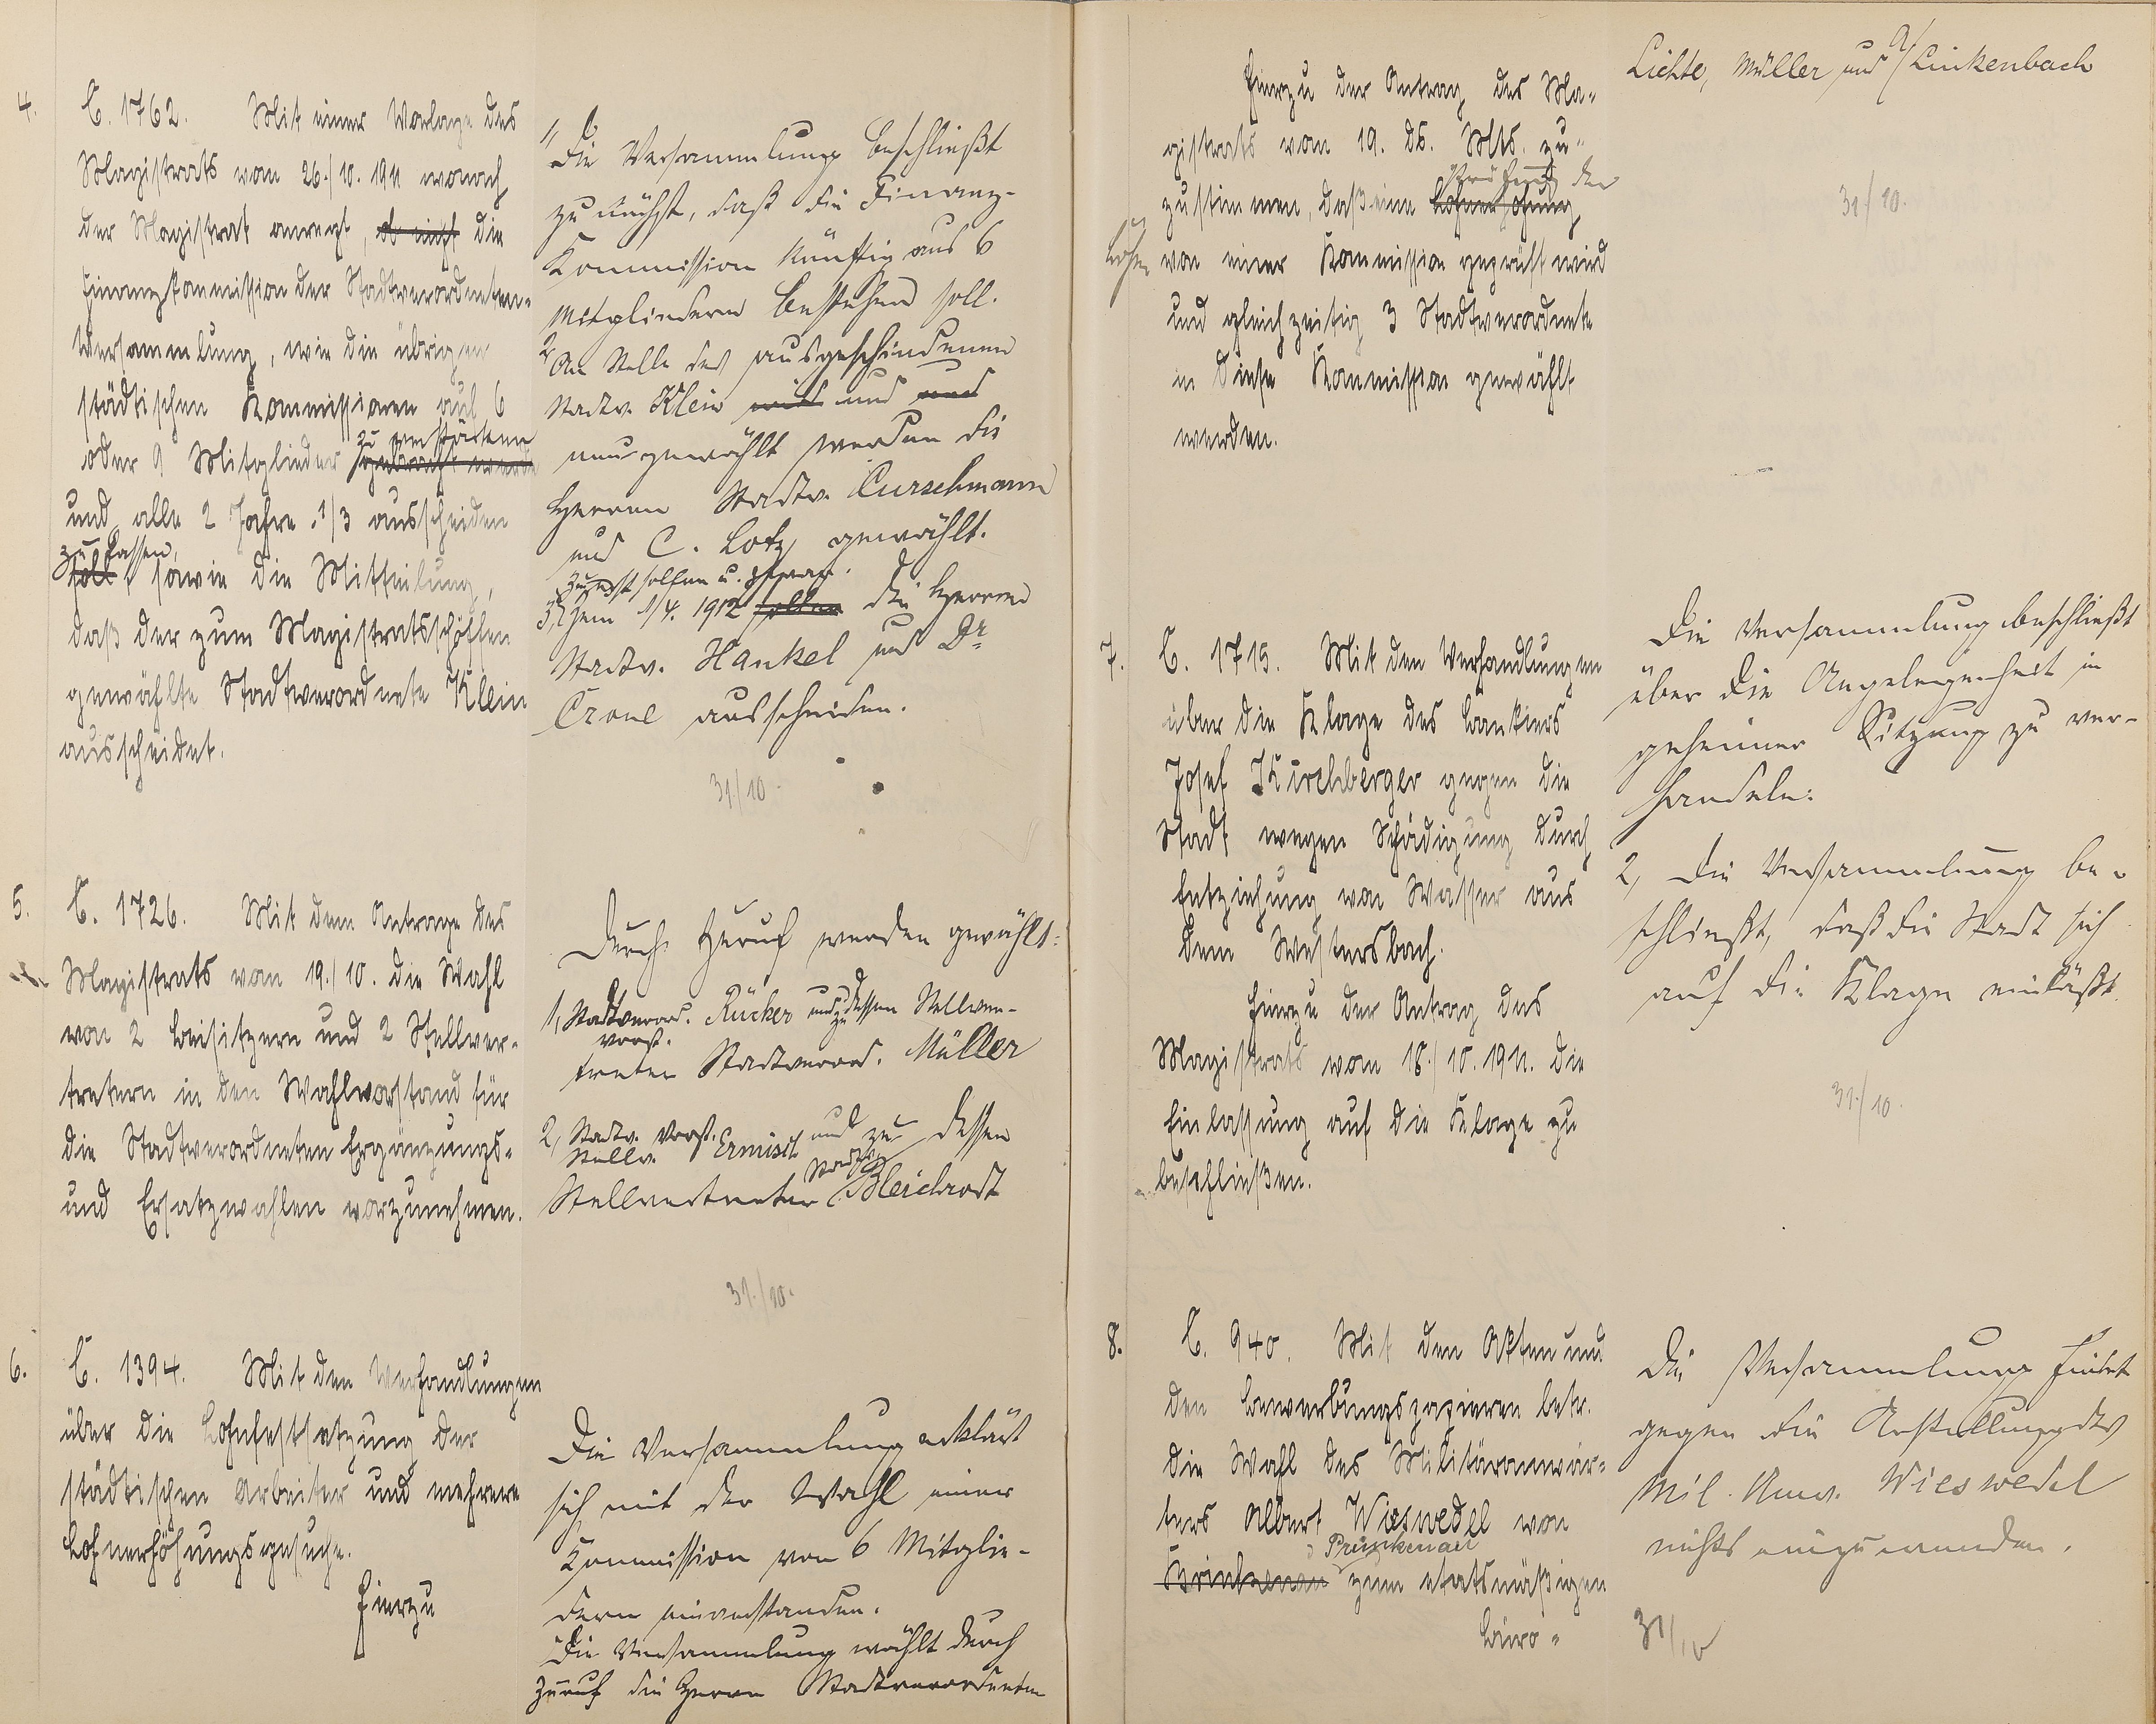 4.
C. 1762. Mit einer Vorlage des
Magistrats vom 26./10. 1911 wonach
der Magistrat anregt, ob nicht die
Finanzkommission der Stadtverordneten-
Versammlung, wie die übrigen
städtischen Kommissionen auf 6
zu verstärken
oder 9 Mitglieder gebracht werde
und alle 2 Jahre 1/3 ausscheiden
zu lassen,
soll, sowie die Mitteilung,
daß der zum Magistratsschöffen
gewählte Stadtverordnete Klein
ausscheidet.
1, Die Versammlung beschließt
zunächst, daß die Finanz-
Kommission künftig aus 6
Mitgliedern bestehen soll.
2, An Stelle des ausgeschiedenen
Stadtv. Klein wird und und
neu gewählt werden die
Herren Stadtv. Curschmann
und C. Lotz gewählt.
zuerst sollen u. zwar
3, Zum 1/4. 1912 sollen die Herren
Stadtv. Hankel und Dr
Crone ausscheiden.
31/10.
5.
C. 1726. Mit dem Antrage des
Magistrats vom 19./10. die Wahl
von 2 Beisitzern und 2 Stellver-
tretern in den Wahlvorstand für
die Stadtverordneten Ergänzungs-
und Ersatzwahlen vorzunehmen.
Durch Zuruf werden gewählt:
1, Stadtverord. Rücker und zu dessen Stellver-
vorst.
treter Stadtverord. Müller
2, Stadtv. Vorst. Ermisch und zu dessen
Stellv.
Stadtv.
Stellvertreter Bleichrodt
31./10.
6.
C. 1394. Mit den Verhandlungen
über die Lohnfestsetzung der
städtischen Arbeiter und mehrere
Lohnerhöhungsgesuche.
Hierzu
Die Versammlung erklärt
sich mit der Wahl einer
Kommission von 6 Mitglie-
dern einverstanden.
Die Versammlung wählt durch
Zuruf die Herren Stadtverordneten
Hierzu der Antrag des Ma-
gistrats vom 19. ds. Mts. zu-
Prüfung der
zustimmen, daß eine Lohnerhöhung
von einer Kommission geprüft wird
und gleichzeitig 3 Stadtverordnete
in diese Kommission gewählt
werden.
Lichte, Müller und Linkenbach
31./10.
7.
C. 1715. Mit den Verhandlungen
über die Klage des Bankiers
Josef Kirchberger gegen die
Stadt wegen Schädigung durch
Entziehung von Wasser aus
dem Westersbach.
Hierzu der Antrag des
Magistrats vom 18./10. 1911. die
Einlassung auf die Klage zu
beschließen.
Die Versammlung beschließt
über die Angelegenheit in
geheimer Sitzung zu ver-
handeln.
2, Die Versammlung be-
schließt, daß die Stadt sich
auf die Klage einläßt.
31./10.
8.
C. 940. Mit den Akten und
den Bewerbungspapieren betr.
die Wahl des Militäranwär-
ters Albert Wieswedel von
Prinkenau
Brinkenau zum etatsmäßigen
Büro-
Die Versammlung findet
gegen die Anstellung des
Mil. Anw. Wieswedel
nichts einzuwenden.
31/10